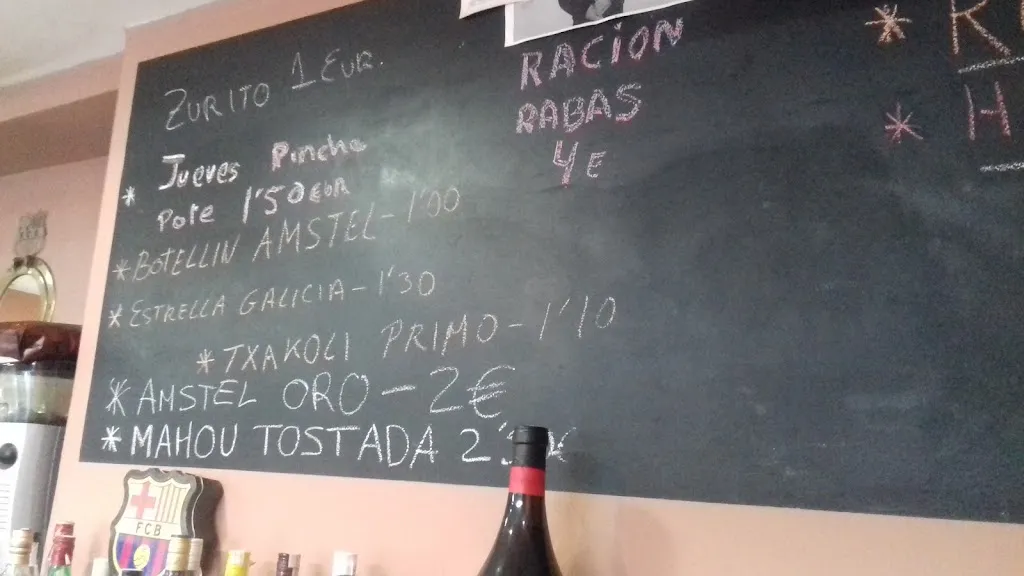 ZURITO 1 EUR.
* Jueves Pincho
Pote 1'50 EUR
* BOTELLIN AMSTEL - 1'00
* ESTRELLA GALICIA - 1'30
* TXAKOLI PRIMO - 1'10
* AMSTEL ORO - 2€
* MAHOU TOSTADA
RACION
RABAS
4 E
FCB